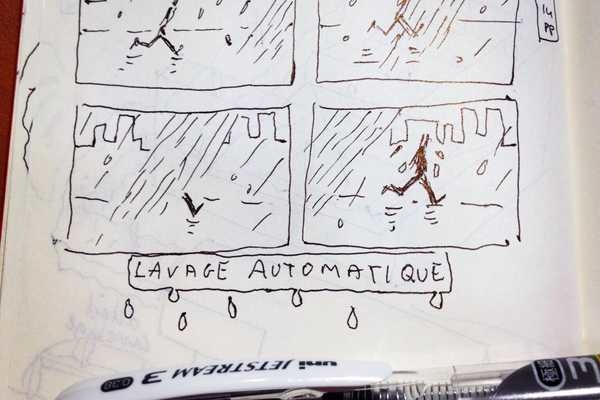 14
PP
LAVAGE AUTOMATIQUE
uni JETSTREAM 3 0.38